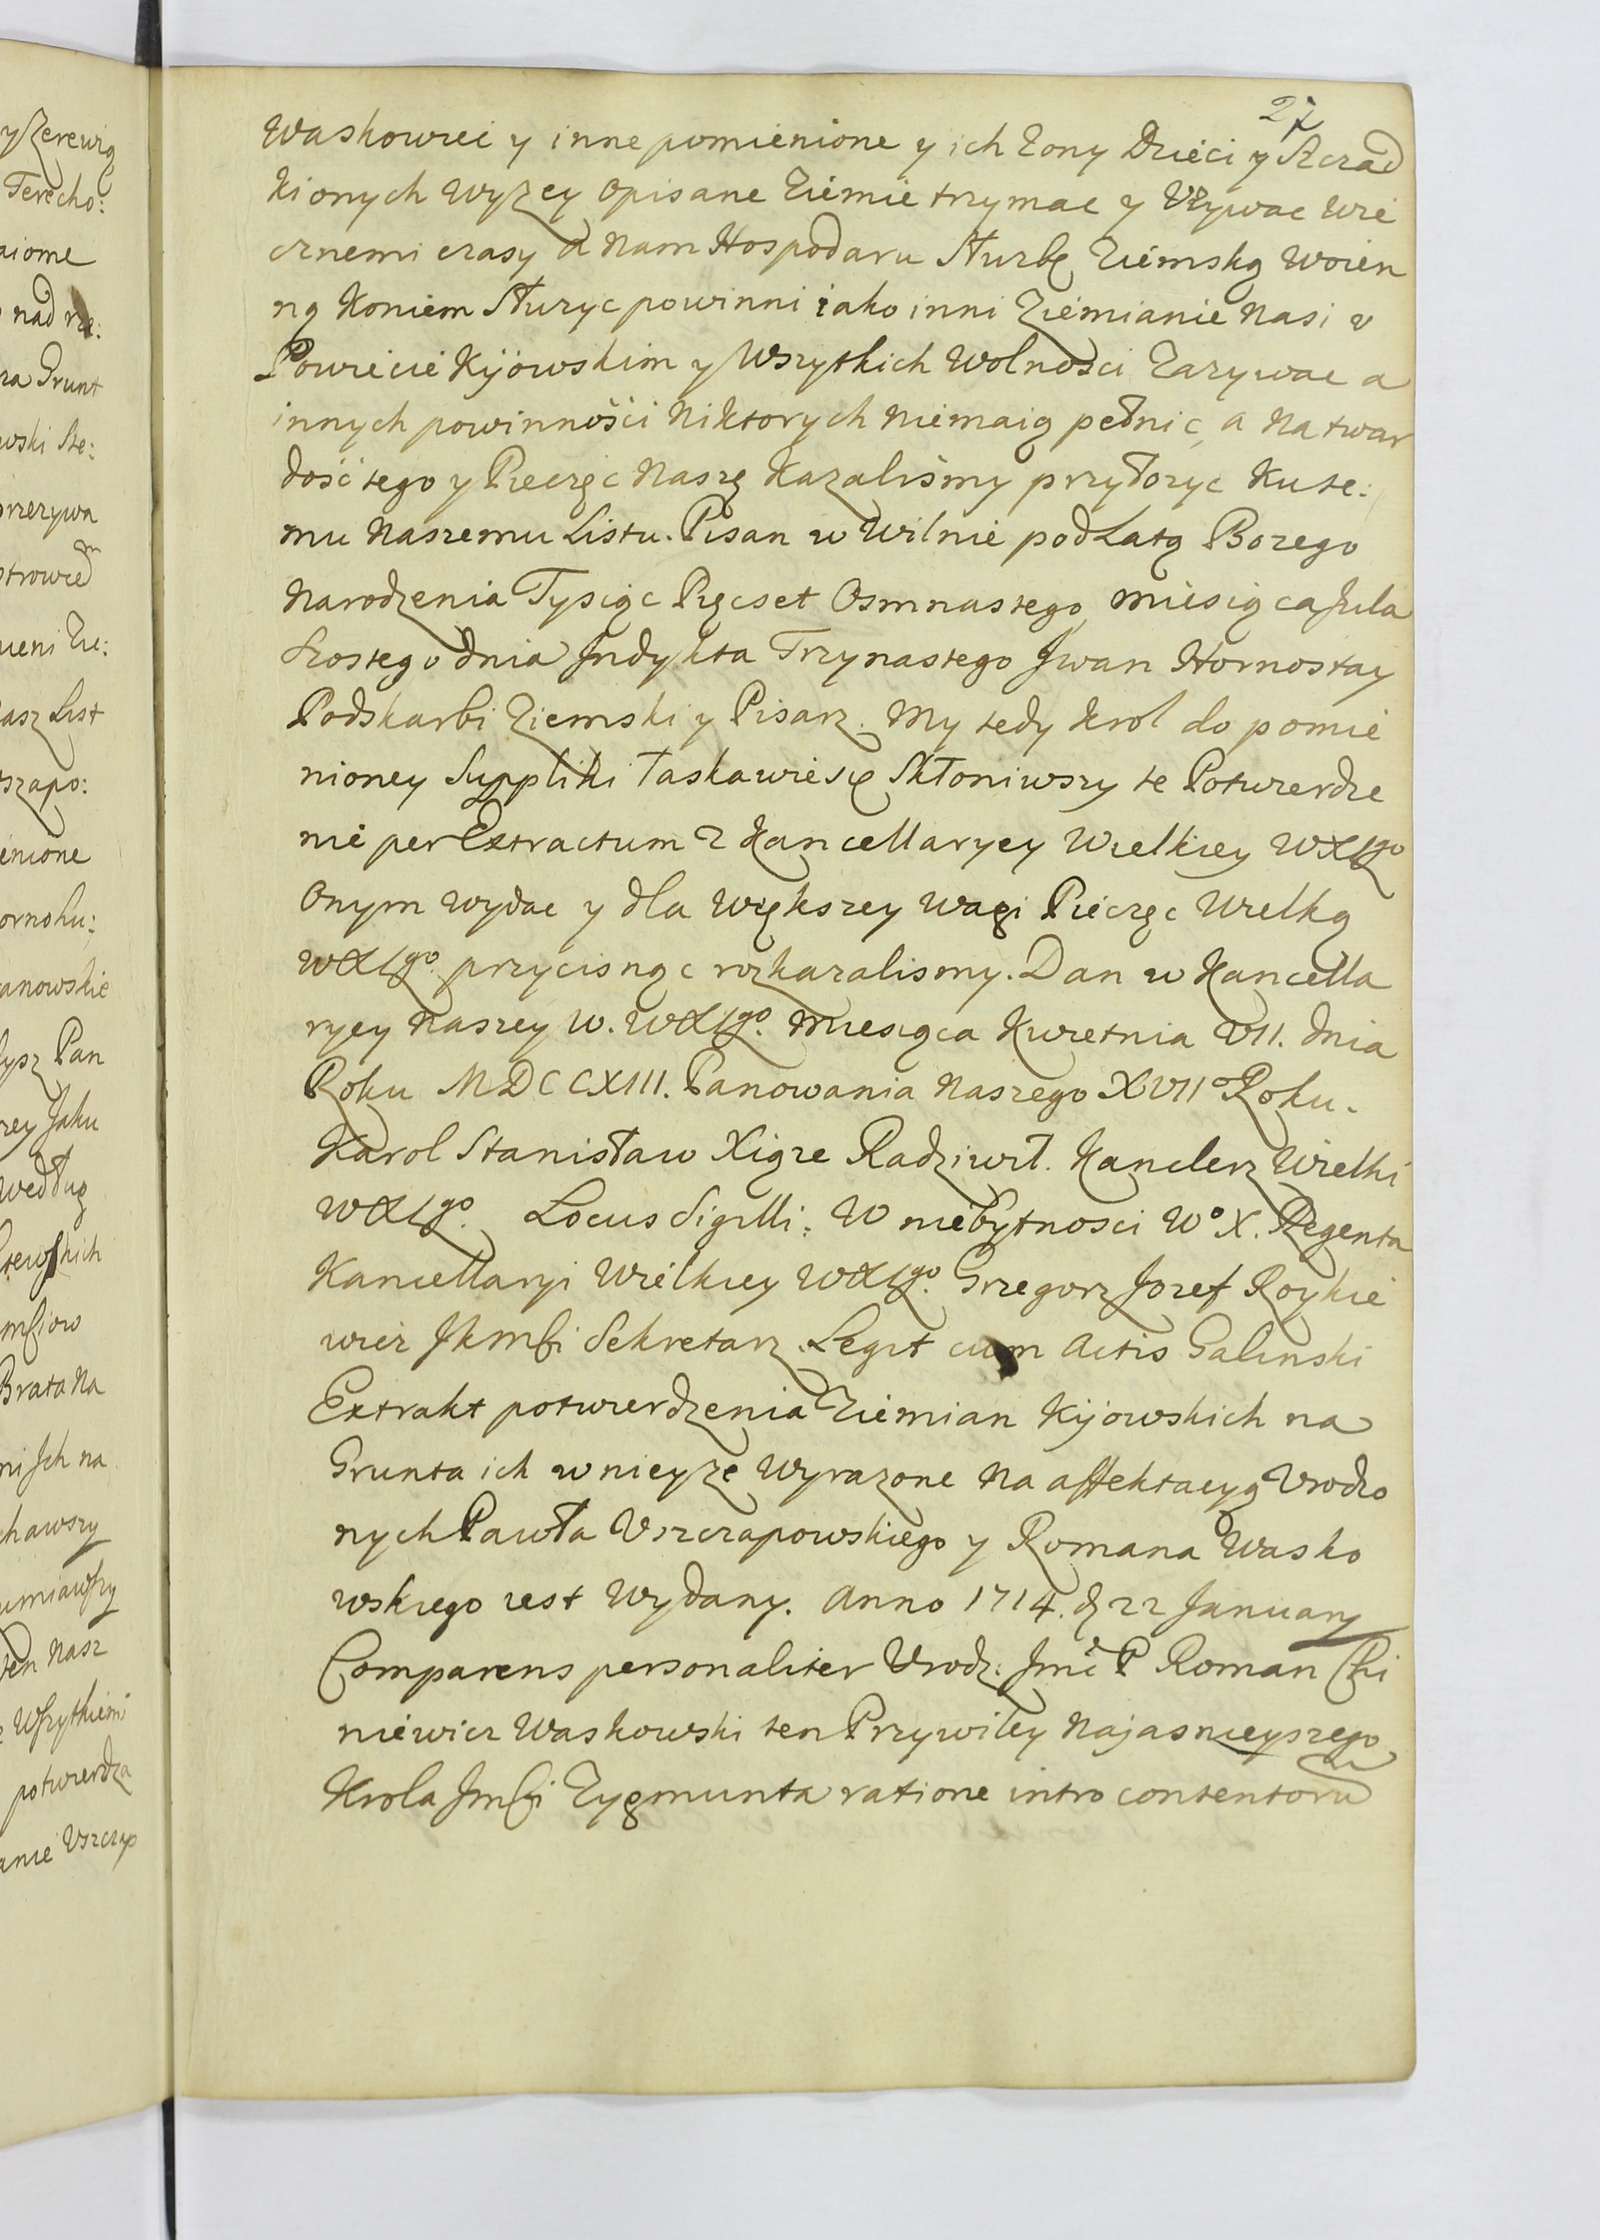 27
Waskowiei y inne pomienione y ich Zony Dzieci y Szczad
kionych wyzey opisane Ziemie trzymac y Vzywac wie
cznemi czasy a nam Hospodaru Służbę Ziemską woien
ną Koniem Służyc powinni iako inni Ziemianie nasi w
Powiecie Kijowskim y Wszytkich Wolnosci Zazywac a
innych powinności niktorych niemaią pełnic, a na twar
dość tego y Pieczęc naszę kazaliśmy przyłozyc ku te:
mu naszemu Listu. Pisan w Wilnie pod Latą Bozego
narodzenia Tysiąc Pięcset Osmnastego miesiąca Jula
Szostego dnia Jndykta Trzynastego Jwan Hornostay
Podskarbi Ziemski y Pisarz. My tedy krol do pomie
nioney Suppliki łaskawie się Skłoniwszy te Potwierdze
nie per Extractum z Kancellaryey Wielkiey WXLgo
Onym wydac y dla większey wagi Pieczęc Wielką
WXLgo przycisnąc rozkazalismy. Dan w Kancella
ryey naszey W. WXLgo. Miesiąca Kwietnia VII. dnia
Roku MDCCXIII. Panowania naszego XVIIo Roku.
Karol Stanisław Xiąze Radziwił. Kanclerz Wielki
WXLgo. Locus Sigilli: W niebytnosci Wo X. Regenta
Kancellaryi Wielkiey WXLgo. Grzegorz Jozef Roykie
wicz Jkmści Sekretarz. Legit cum Actis Galinski
Extrakt potwierdzenia Ziemian Kijowskich na
Grunta ich w nieyze wyrazone na affektacyą Vrodzo
nych Pawła Vszczapowskiego y Romana Wasko
wskiego iest wydany. Anno 1714. d 22 January
Comparens personaliter Vrodz: Jmć P Roman Chi
niewicz Waskowski ten Przywiley Najasnieyszego
Krola Jmści Zygmunta ratione intro contentoru